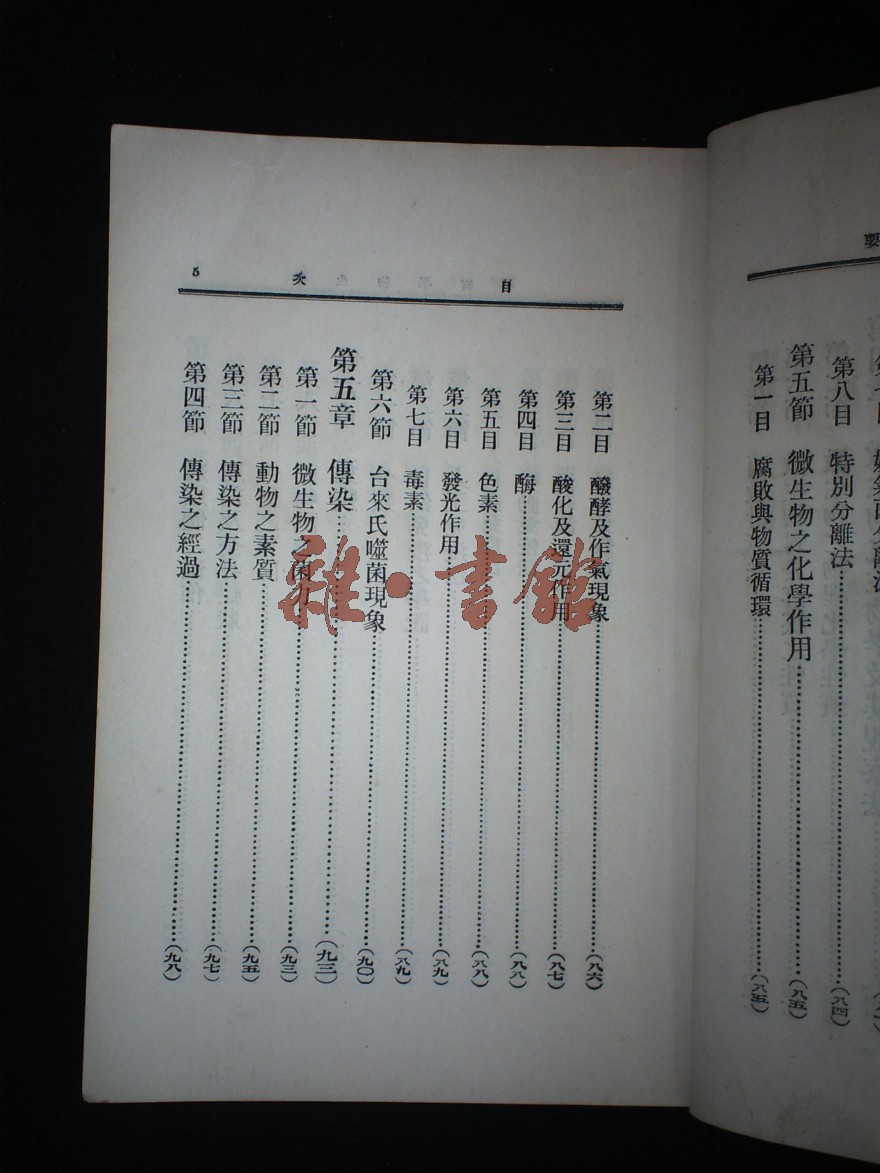 要
第八目　特別分離法………(八四)
第五節　微生物之化學作用………(八五)
第一目　腐敗與物質循環………(八五)
目　次　5
第二目　醱酵及作氣現象………(八六)
第三目　酸化及還元作用………(八七)
第四目　酶………(八八)
第五目　色素………(八八)
第六目　發光作用………(八九)
第七目　毒素………(八九)
第六節　台來氏噬菌現象………(九〇)
第五章　傳染………(九三)
第一節　微生物之菌力………(九三)
第二節　動物之素質………(九五)
第三節　傳染之方法………(九七)
第四節　傳染之經過………(九八)
雜·書館